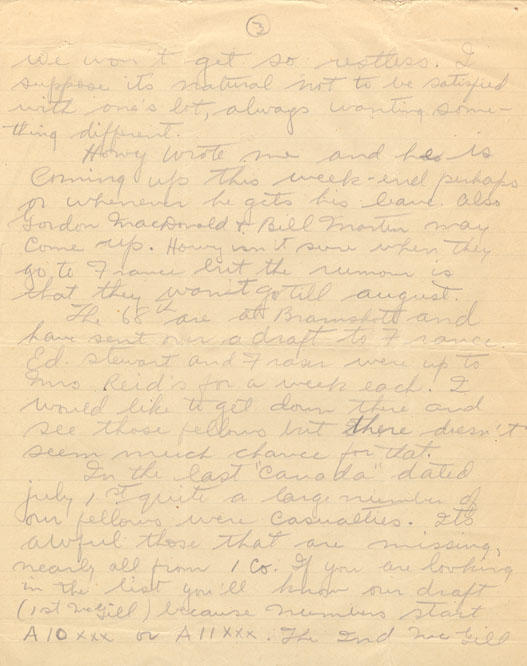 3
we won't get so restless. I
suppose its natural not to be satisfied
with one's lot, always wanting some-
thing different.
Howy wrote me and he is
coming up this week-end perhaps
or whenever he gets his leave. also
Gordon MacDonald & Bill Martin may
come up. Howy isn't sure when they
go to France but the rumour is
that they won't go till august.
The '68th are at Bramshott and
have sent over a draft to France.
Ed. Stewart and Fraser were up to
Mrs Reid's for a week each. I
would like to get down there and
see those fellows but there doesn't
seem much chance for that.
In the last "Canada" dated
july 1st quite a large number of
our fellows were casualties. Its
awful those that are missing,
nearly all from 1 Co. If you are looking
in the list you'll know our draft
(1st McGill) because numbers start
A10xxx or A11xxx. The 2nd McGill